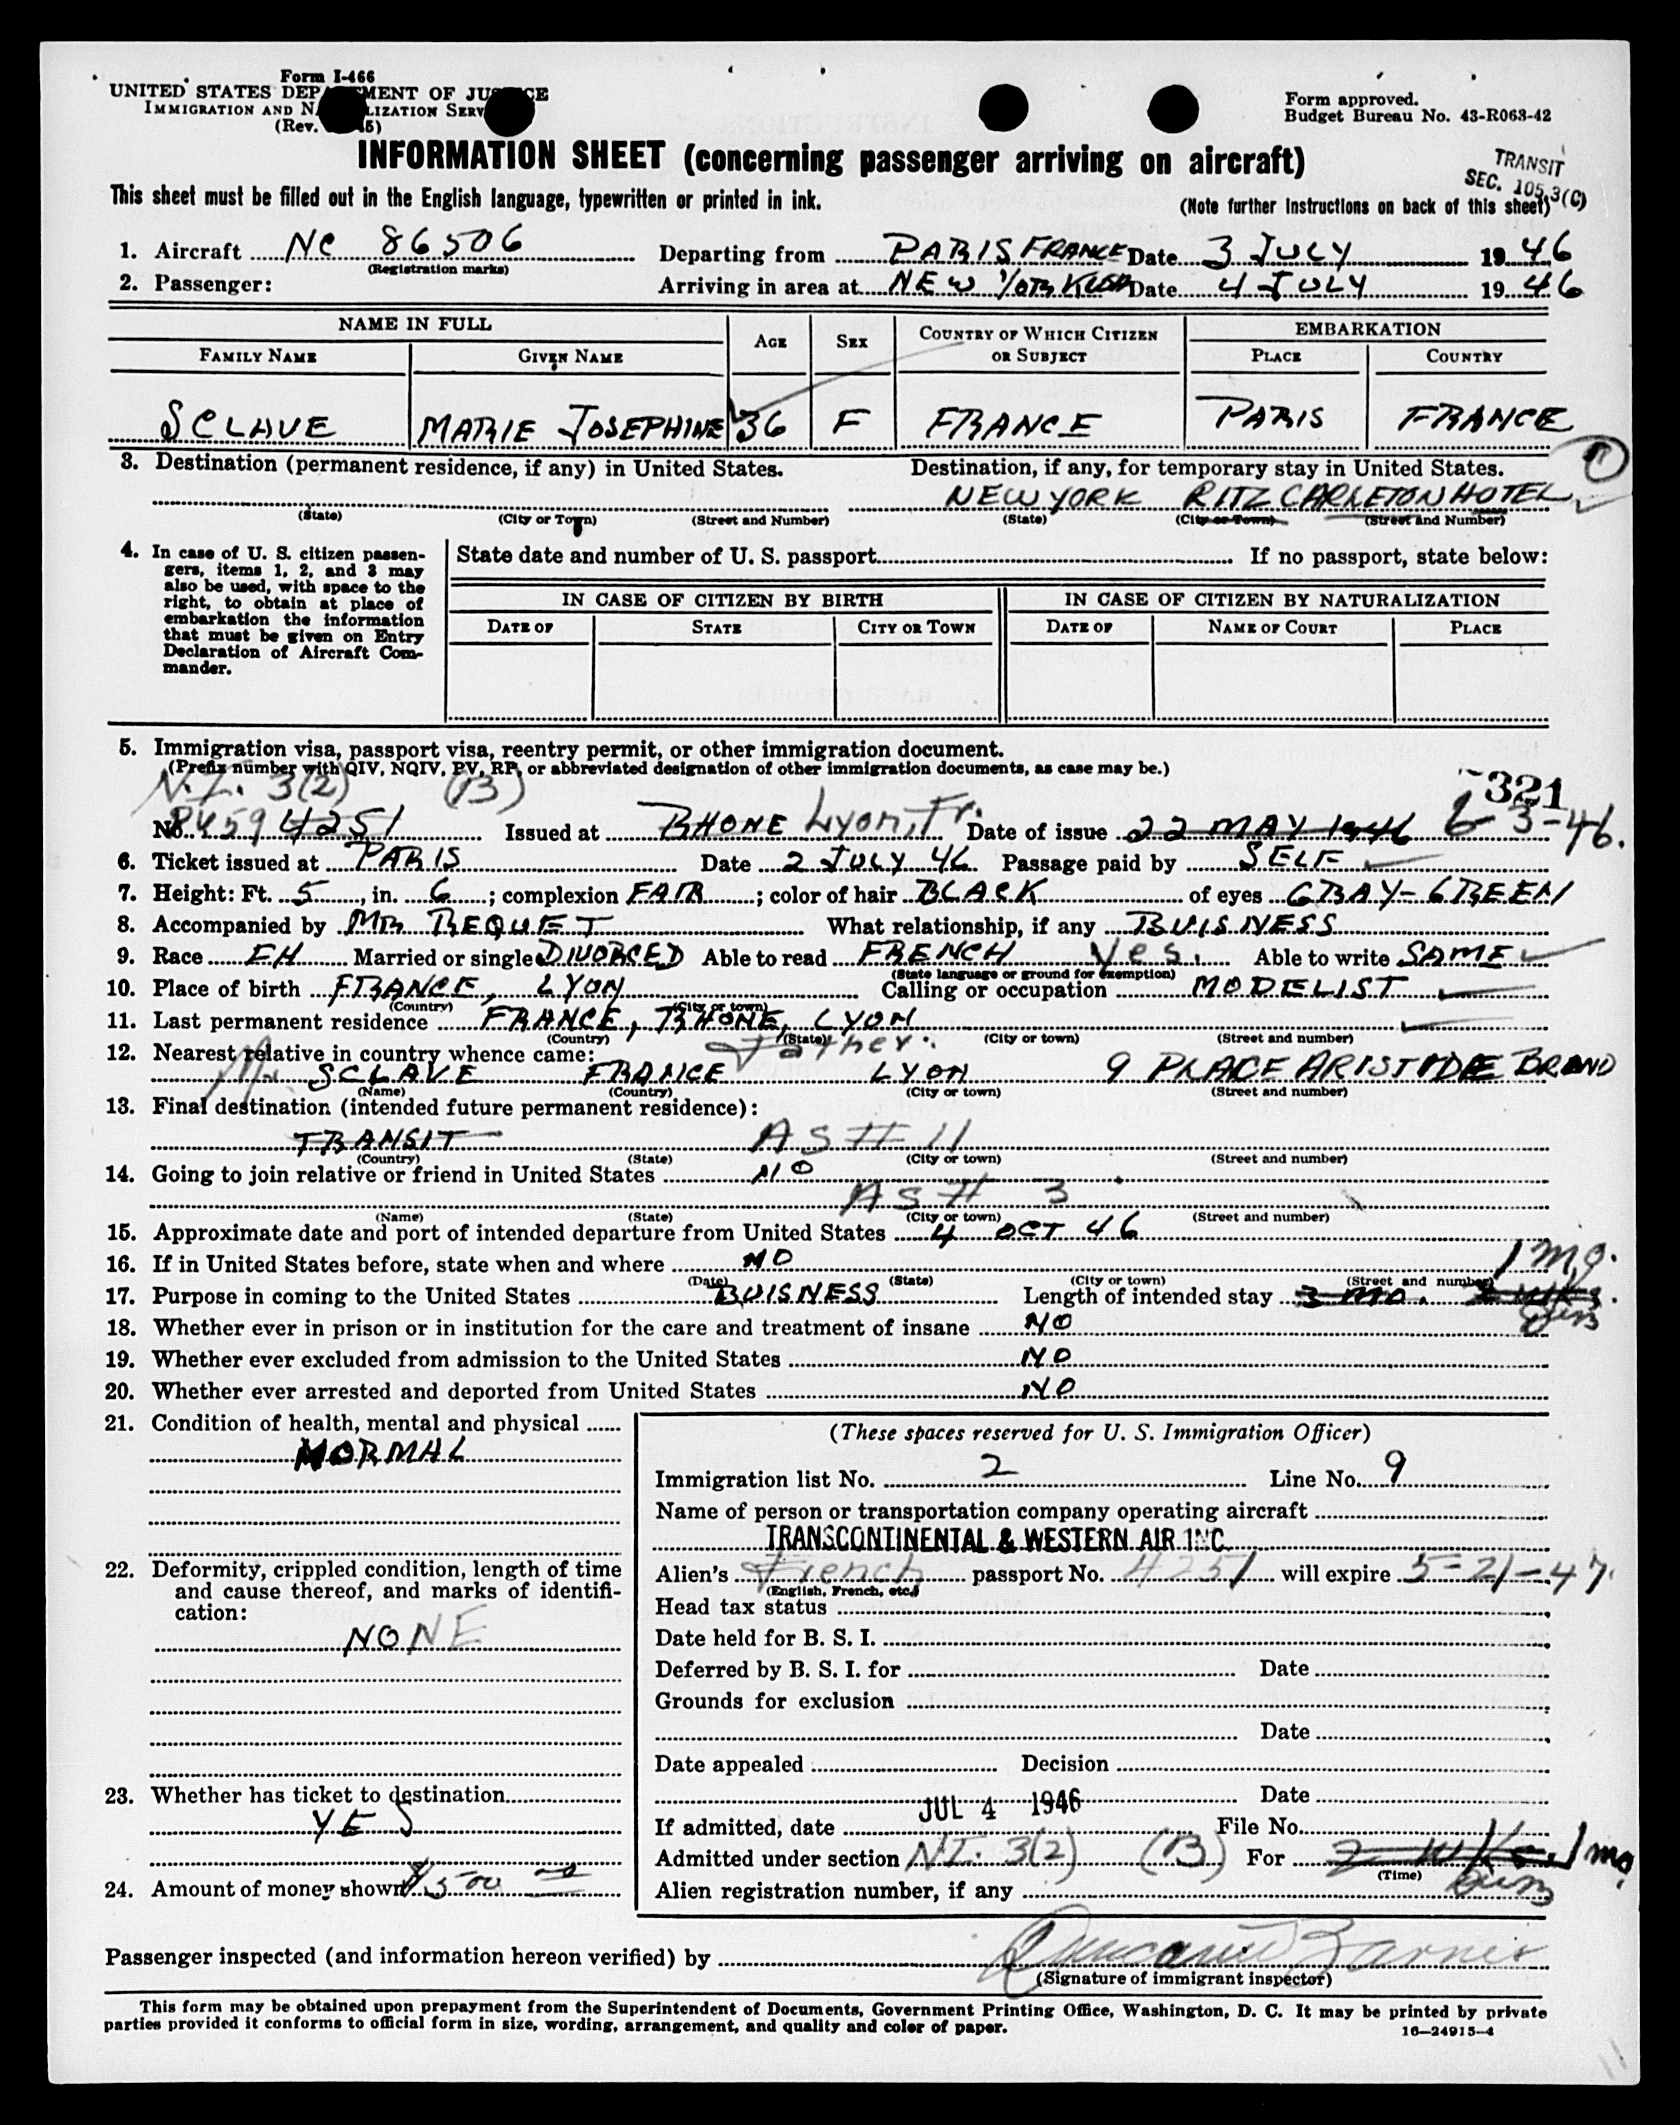 Form I-466
UNITED STATES DEPARTMENT OF JUSTICE
IMMIGRATION AND NATURALIZATION SERVICE
(Rev. 45)
Form approved.
Budget Bureau No. 43-R063-42
INFORMATION SHEET (concerning passenger arriving on aircraft)
TRANSIT
SEC. 105.3(C)
This sheet must be filled out in the English language, typewritten or printed in ink.
(Note further instructions on back of this sheet)
1. Aircraft NC 86506 Departing from PARIS FRANCE Date 3 JULY 1946
(Registration marks)
2. Passenger: Arriving in area at NEW YORK Date 4 JULY 1946
NAME IN FULL AGE SEX COUNTRY OF WHICH CITIZEN OR SUBJECT EMBARKATION
FAMILY NAME GIVEN NAME PLACE COUNTRY
SCLAVE MARIE JOSEPHINE 36 F FRANCE PARIS FRANCE
3. Destination (permanent residence, if any) in United States. Destination, if any, for temporary stay in United States.
NEW YORK RITZ CARLETON HOTEL
(State) (City or Town) (Street and Number) (State) (City or Town) (Street and Number)
4. In case of U. S. citizen passengers, items 1, 2, and 3 may also be used, with space to the right, to obtain at place of embarkation the information that must be given on Entry Declaration of Aircraft Commander.
State date and number of U. S. passport If no passport, state below:
IN CASE OF CITIZEN BY BIRTH IN CASE OF CITIZEN BY NATURALIZATION
DATE OF STATE CITY OR TOWN DATE OF NAME OF COURT PLACE
5. Immigration visa, passport visa, reentry permit, or other immigration document.
(Prefix number with QIV, NQIV, PV, RP, or abbreviated designation of other immigration documents, as case may be.)
N.I. 3(2) (B) 321
No. 4251 Issued at RHONE Lyon, Fr. Date of issue 22 MAY 1946 6-3-46.
6. Ticket issued at PARIS Date 2 JULY 46 Passage paid by SELF
7. Height: Ft. 5, in. 6; complexion FAIR; color of hair BLACK of eyes GRAY-GREEN
8. Accompanied by MR REQUET What relationship, if any BUISNESS
9. Race FH Married or single DIVORCED Able to read FRENCH Yes. Able to write SAME
(State language or ground for exemption)
10. Place of birth FRANCE, LYON Calling or occupation MODELIST
(Country) (City or town)
11. Last permanent residence FRANCE, RHONE, LYON
(Country) (State) (City or town) (Street and number)
12. Nearest relative in country whence came: Father.
M. SCLAVE FRANCE LYON 9 PLACE ARISTIDE BRAND
(Name) (Country) (City or town) (Street and number)
13. Final destination (intended future permanent residence):
TRANSIT AS # 11
(Country) (State) (City or town) (Street and number)
14. Going to join relative or friend in United States NO
AS # 3
(Name) (State) (City or town) (Street and number)
15. Approximate date and port of intended departure from United States 4 OCT 46
16. If in United States before, state when and where NO 1 mo.
(Date) (State) (City or town) (Street and number)
17. Purpose in coming to the United States BUISNESS Length of intended stay 3 mo.
18. Whether ever in prison or in institution for the care and treatment of insane NO
19. Whether ever excluded from admission to the United States NO
20. Whether ever arrested and deported from United States NO
21. Condition of health, mental and physical
NORMAL
22. Deformity, crippled condition, length of time and cause thereof, and marks of identification:
NONE
23. Whether has ticket to destination
YES
24. Amount of money shown $500
(These spaces reserved for U. S. Immigration Officer)
Immigration list No. 2 Line No. 9
Name of person or transportation company operating aircraft
TRANSCONTINENTAL & WESTERN AIR INC.
Alien's French passport No. 4251 will expire 5-21-47.
(English, French, etc.)
Head tax status
Date held for B. S. I.
Deferred by B. S. I. for Date
Grounds for exclusion
Date
Date appealed Decision
Date
JUL 4 1946
If admitted, date File No.
Admitted under section N.I. 3(2) (B) For 2 wks 1 mo.
(Time)
Alien registration number, if any
Passenger inspected (and information hereon verified) by
(Signature of immigrant inspector)
This form may be obtained upon prepayment from the Superintendent of Documents, Government Printing Office, Washington, D. C. It may be printed by private
parties provided it conforms to official form in size, wording, arrangement, and quality and color of paper.
16—24915-4